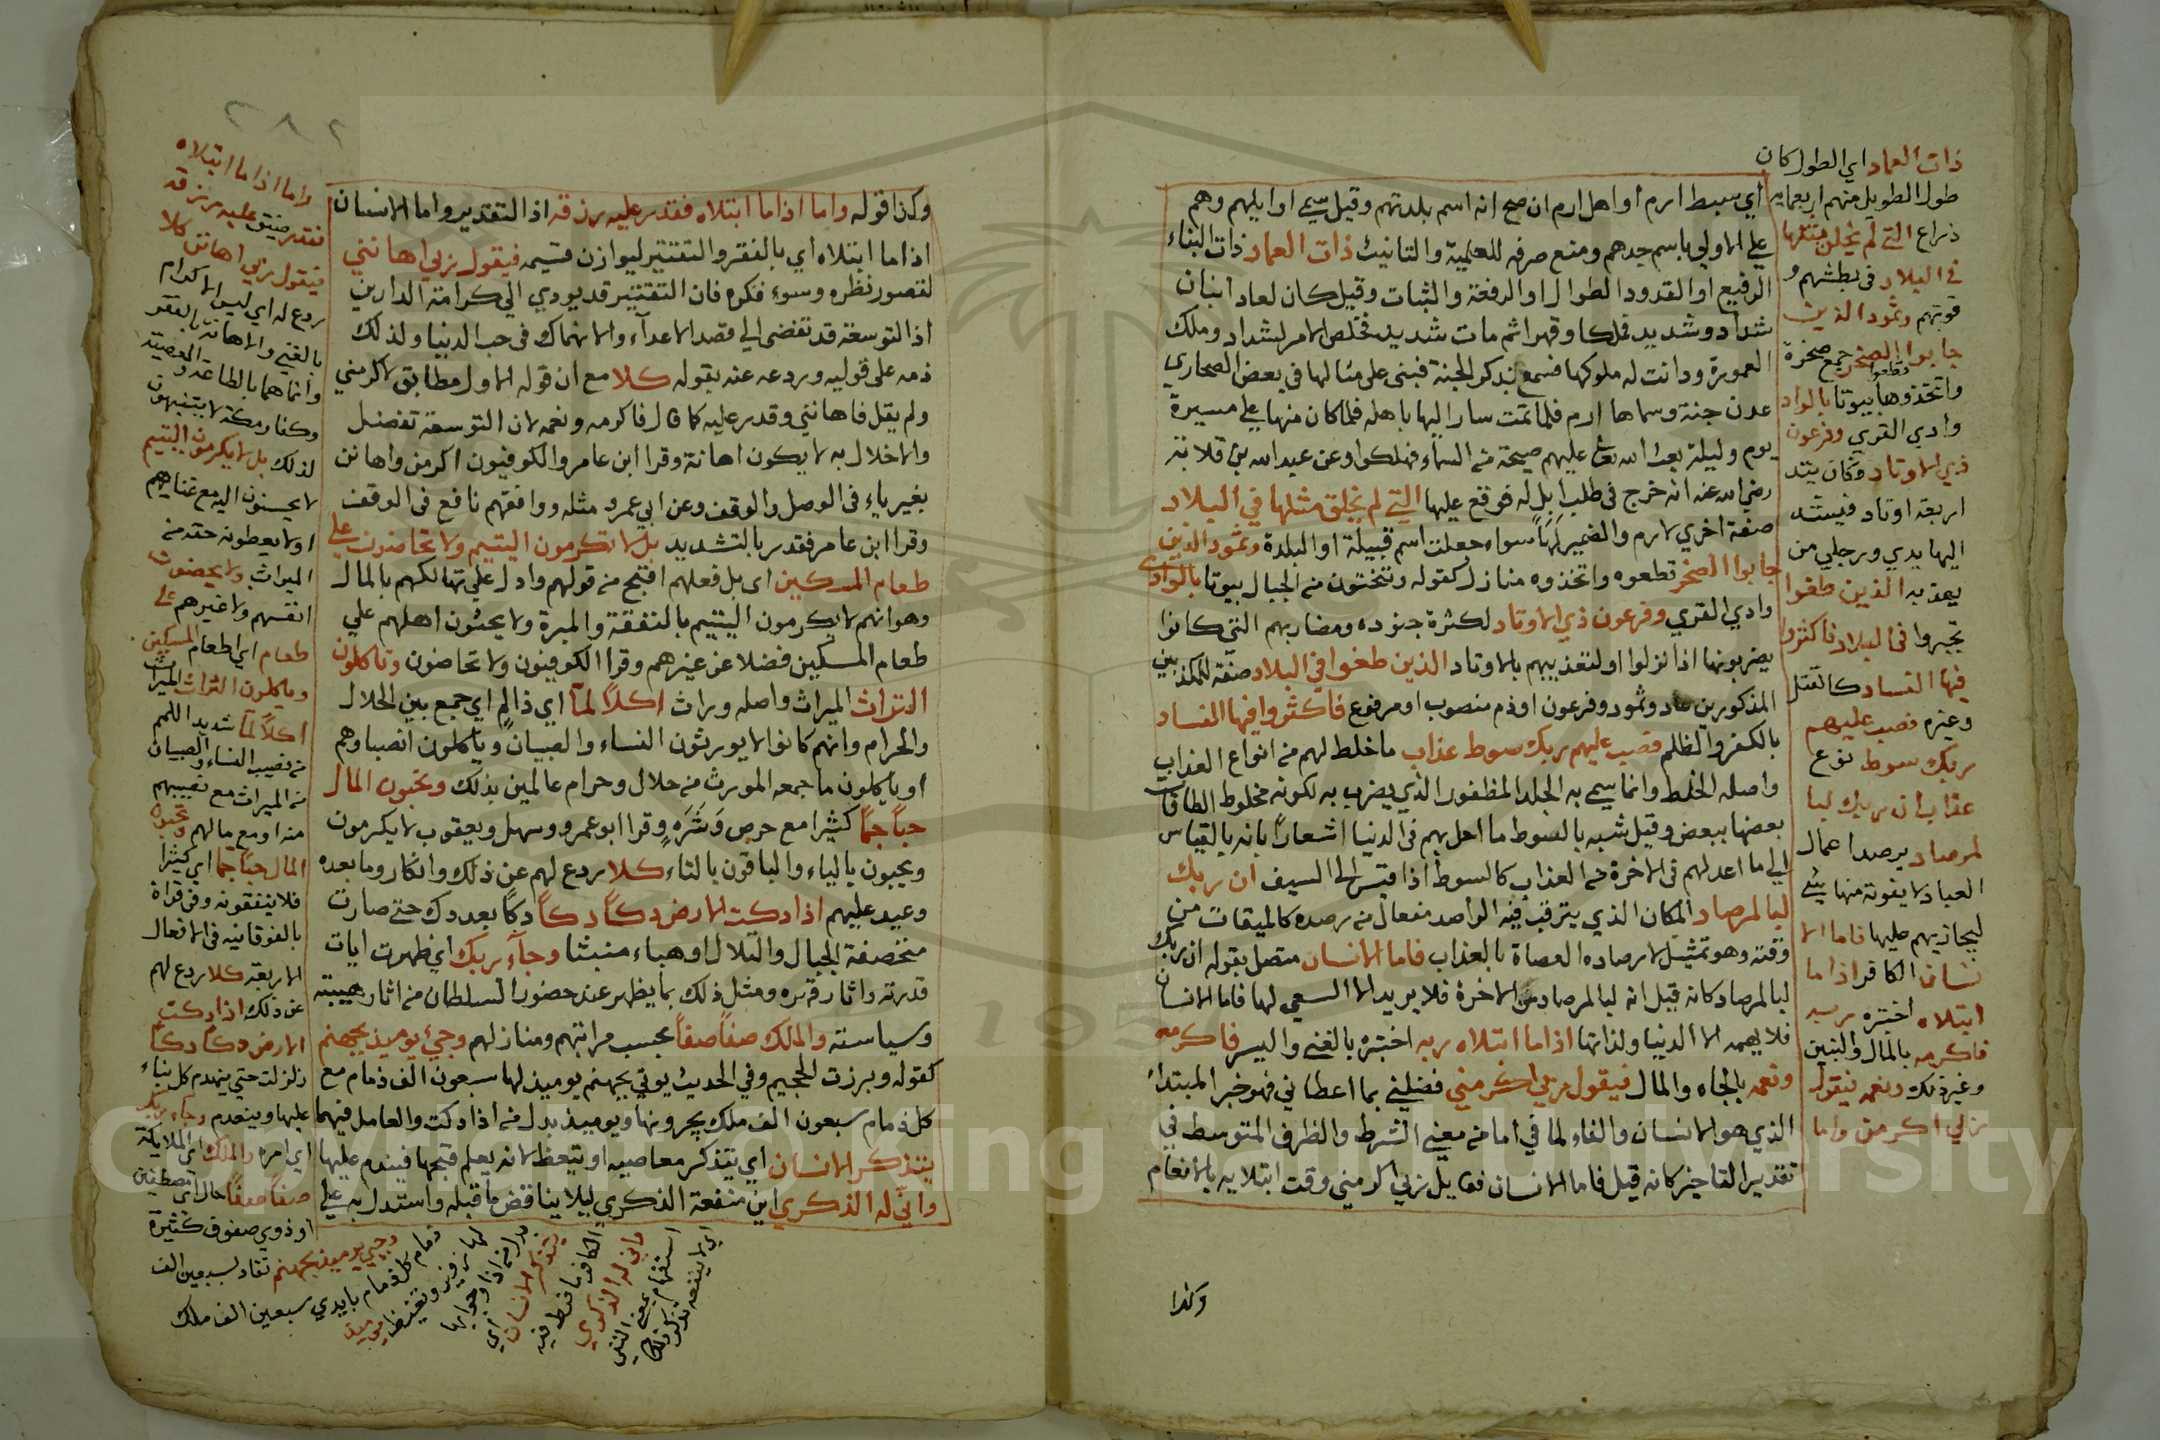 ذات العماد اي الطول كان
طول الطويل منهم اربعماية
ذراع التي لم يخلق مثلها
في البلاد في بطشهم و
قوتهم وثمود الذين
جابوا قطعوا الصخر جمع صخرة
واتخذوها بيوتا بالواد
وادي القري وفرعون
ذي الاوتاد وكان يتد
اربعة اوتاد فيشد
اليها يدي ورجلي من
يعذبه الذين طغوا
تجبروا في البلاد فاكثروا
فيها الفساد كالقتل
وغيره فصب عليهم
ربك سوط نوع
عذاب ان ربك لبا
لمرصاد يرصد اعمال
العباد لا يفوته منها شي
ليجازيهم عليها فاما الا
نسان الكافر اذا ما
ابتلاه اختبره ربه
فاكرمه بالمال والبنين
وغير ذلك ونعمه فيقول
ربي اكرمن واما
اي سبط ارم او اهل ارم ان صح انه اسم بلدتهم وقيل سمي اوايلهم وهم
علي الاولي باسم جدهم ومنع صرفه للعلمية والتانيث ذات العماد ذات البناء
الرفيع او القدود الطوال او الرفعة والثبات وقيل كان لعاد ابنان
شداد وشديد فملكا وقهرا ثم مات شديد فخلص الامر لشداد وملك
المعمورة ودانت له ملوكها فسمع بذكر الجنة فبني على مثالها في بعض الصحاري
عدن جنة وسماها ارم فلما تمت سار اليها باهله فلما كان منها علي مسيرة
يوم وليلة بعث الله تعالي عليهم صيحة من السماء فهلكوا وعن عبد الله بن قلابة
رضي الله عنه انه خرج في طلب ابل له فوقع عليها التي لم يخلق مثلها في البلاد
صفة اخري لارم والضمير لها سواء جعلت اسم قبيلة او البلدة وثمود الذين
جابوا الصخر قطعوه واتخذوه منازل لقوله وتنحتون من الجبال بيوتا بالوادي
وادي القري وفرعون ذي الاوتاد لكثرة جنوده ومضاربهم التي كانوا
يضربونها اذا نزلوا او لتعذيبهم بالاوتاد الذين طغوا في البلاد صفة للمكذبين
المذكورين عاد وثمود وفرعون او ذم منصوب او مرفوع فاكثروا فيها الفساد
بالكفر والظلم فصب عليهم ربك سوط عذاب ما خلط لهم من انواع العذاب
واصله الخلط وانما سمي به الجلد المظفور الذي يضرب به لكونه مخلوط الطاقات
بعضها ببعض وقيل شبه بالسوط ما احل بهم في الدنيا اشعارا بانه بالقياس
الي ما اعد لهم في الاخرة من العذاب كالسوط اذا قيس الي السيف ان ربك
لبالمرصاد المكان الذي يترقب فيه الراصد مفعال من رصده كالميقات من
وقته وهو تمثيل لارصاده العصاة بالعذاب فاما الانسان متصل بقوله ان ربك
لبالمرصاد كانه قيل انه لبالمرصاد من الاخرة فلا يريد الا السعي لها فاما الانسان
فلا يهمه الا الدنيا ولذاتها اذا ما ابتلاه ربه اختبره بالغني واليسر فاكرمه
ونعمه بالجاه والمال فيقول ربي اكرمني فضلني بما اعطاني فهو خبر المبتداء
الذي هو الانسان والفاء لما في اما من معني الشرط والظرف المتوسط في
تقدير التاخير كانه قيل فاما الانسان فقايل ربي اكرمني وقت ابتلايه بالانعام
وكذا
واما اذا ما ابتلاه
فقدر ضيق عليه رزقه
فيقول ربي اهانن كلا
ردع له اي ليس الاكرام
بالغني والاهانة بالفقر
وانما هما بالطاعة والمعصية
وكفار مكة لا يتنبهون
لذلك بل لا يكرمون اليتيم
لا يحسنون اليه مع غناهم
او لا يعطونه حقه من
الميراث ولا يحضون
انفسهم ولا غيرهم علي
طعام اي اطعام المسكين
وياكلون التراث الميراث
اكلا لما شديدا اللمهم
من نصيب النساء والصبيان
من الميراث مع نصيبهم
منه او مع مالهم ويحبون
المال حبا جما اي كثيرا
فلا ينفقونه وفي قراة
بالفوقانيه في الافعال
الاربعة كلا ردع لهم
عن ذلك اذا دكت
الارض دكا دكا
زلزلت حتي ينهدم كل بناء
عليها وينعدم وجاء ربك
اي امره والملك اي الملايكة
صفا صفا حال اي مصطفين
او ذوي صفوف كثيرة
وجيء يوميذ بجهنم تقاد بسبعين الف
زمام كل زمام بايدي سبعين الف ملك
لها زفير وتغيظ يوميذ
بدل من اذا وجوابها
يتذكر الانسان اي
الكافر ما فرط فيه
واني له الذكري
استفهام بمعني النفي
اي لا ينفعه تذكره ذلك
وكذا قوله واما اذا ما ابتلاه فقدر عليه رزقه اذ التقدير واما الانسان
اذا ما ابتلاه اي بالفقر والتقتير ليوازن قسيمه فيقول ربي اهانني
لقصور نظره وسوء فكره فان التقتير قد يودي الي كرامة الدارين
اذ التوسعة قد تفضي الي قصد الاعداء والانهماك في حب الدنيا ولذلك
ذمه على قوليه وردعه عنه بقوله كلا مع ان قوله الاول مطابق لاكرمني
ولم يقل فاهانني وقدر عليه كما قال فاكرمه ونعمه لان التوسعة تفضل
والاخلال به لا يكون اهانة وقرا ابن عامر والكوفيون اكرمن واهانن
بغير ياء في الوصل والوقف وعن ابي عمرو مثله ووافقهم نافع في الوقف
وقرا ابن عامر فقدر بالتشديد بل لا تكرمون اليتيم ولا تحاضون علي
طعام المسكين اي بل فعلهم اقبح من قولهم وادل علي تهالكهم بالمال
وهو انهم لا يكرمون اليتيم بالنفقة والمبرة ولا يحثون اهلهم علي
طعام المسكين فضلا عن غيرهم وقرا الكوفيون ولا تحاضون وتاكلون
التراث الميراث واصله وراث اكلا لما اي ذا لم اي جمع بين الحلال
والحرام وانهم كانوا لا يورثون النساء والصبيان وياكلون انصباوهم
او ياكلون ما جمعه المورث من حلال وحرام عالمين بذلك وتحبون المال
حبا جما كثيرا مع حرص وشره وقرا ابو عمرو وسهل ويعقوب لا يكرمون
ويحبون بالياء والباقون بالتاء كلا ردع لهم عن ذلك وانكار وما بعده
وعيد عليهم اذا دكت الارض دكا دكا دكا بعد دك حتى صارت
منخصفة الجبال والتلال او هباء منبثا وجاء ربك اي ظهرت ايات
قدرته واثار قهره ومثل ذلك بما يظهر عند حضور السلطان من اثار هيبته
وسياسته والملك صفا صفا بحسب مراتبهم ومنازلهم وجيء يوميذ بجهنم
كقوله وبرزت الجحيم وفي الحديث يوتي بجهنم يوميذ لها سبعون الف زمام مع
كل زمام سبعون الف ملك يجرونها ويوميذ بدل من اذا دكت والعامل فيهما
يتذكر الانسان اي يتذكر معاصيه او يتعظ لانه يعلم قبحها فيندم عليها
واني له الذكري اين منفعة الذكري ليلا يناقض ما قبله واستدل به علي
٢٨٢
Copyright © King Saud University
1957